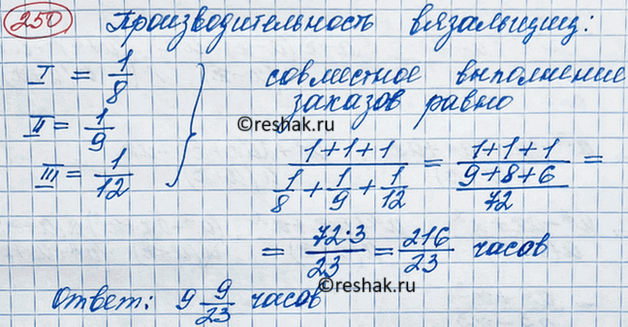 250 Производительность вязальщиц:
I = 1/8
II = 1/9
III = 1/12
совместное выполнение
заказов равно
(1+1+1)/(1/8 + 1/9 + 1/12) = (1+1+1)/((9+8+6)/72) =
= (72·3)/23 = 216/23 часов
Ответ: 9 9/23 часов
©reshak.ru
©reshak.ru